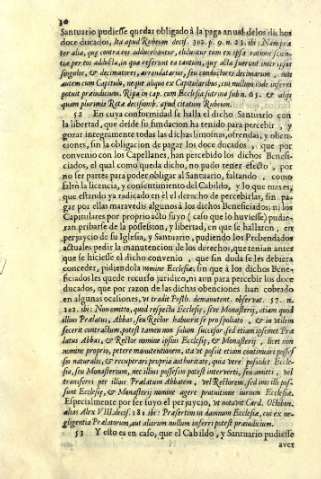 30
Santuario pudiesse quedar obligado à la paga anual de los dichos
doce ducados, ita apud Rubeum decis. 302. p. 9. n. 23. ibi: Nam præ
ter alia, quæ contra eos adducebantur, dicitur tum ex ipsa ratione
tua per eos adductis, in qua referunt ea tantum, quæ acta fuerunt inter ipsos
singulos, & decimatores, arrendatarios, seu conductores decimarum, non
autem cum Capitulo, neque aliquo ex Capitularibus, cui nullum inde inferri
potuit præiudicium. Riga in cap. cum Ecclesia sutrina num. 65. & alij
quam plurimis Rotæ decisionib. apud citatum Rubeum.
52 En cuya conformidad se halla el dicho Santuario con
la libertad, que desde su fundacion ha tenido para percebir, y
gozar integramente todas las dichas limosnas, ofrendas, y obten-
ciones, sin la obligacion de pagar los doce ducados, que por
convenio con los Capellanes, han percebido los dichos Benefi-
ciados, el qual como queda dicho, no pudo tener efecto, por
no ser partes para poder obligar al Santuario, faltando, como
faltò la licencia, y consentimiento del Cabildo, y lo que mas es,
que estando ya radicado en èl el derecho de percebirlas, sin pa-
gar por ellas maravedis algunos à los dichos Beneficiados; ni los
Capitulares por proprio acto suyo (caso que lo huviesse) pudie-
ran pribarse de la possesion, y libertad, en que se hallaron, en
perjuycio de su Iglesia, y Santuario, pudiendo los Prebendados
actuales pedir la manutencion de los derechos, que tenian antes
que se hiciesse el dicho convenio, que sin duda se les debiera
conceder, pidiendola nomine Ecclesiæ, sin que à los dichos Bene-
ficiados les quede recurso juridico, ni aun para percebir los doce
ducados, que por razon de las dichas obenciones han cobrado
en algunas ocasiones, ut tradit Posth. de manutent. observat. 57. n.
102. ibi: Nunc mitto, quod respectu Ecclesiæ, seu Monasterij, etiam quod
illius Prælatus, Abbas, seu Rector habuerit se pro spoliato, & in vilium
fecerit contractum, potest tamen non solum successor, sed etiam ipsemet Præ
latus Abbas, & Rector nomine ipsius Ecclesiæ, & Monasterij, licet non
nomine proprio, petere manutentionem, ita ut possit etiam continuari posses
sio naturalis, & recuperari propria authoritate, quia vere possidet Ecclesia,
seu Monasterium, nec illius possessio potest interverti, seu amitti, vel
transferri per illius Prælatum Abbatem, vel Rectorem, sed ius illi pos-
sunt Ecclesiæ, & Monasterij nomine agere pro tuitione iurium Ecclesiæ.
Especialmente por ser suyo el perjuycio, ut notavit Card. Othobon.
alias Alex VIII. decis. 181. ibi: Præsertim in damnum Ecclesiæ, cui ex ne-
gligentia Prælatorum, aut aliorum nullum inferri potest præiudicium.
53 Y esto es en caso, que el Cabildo, y Santuario pudiesse
aver